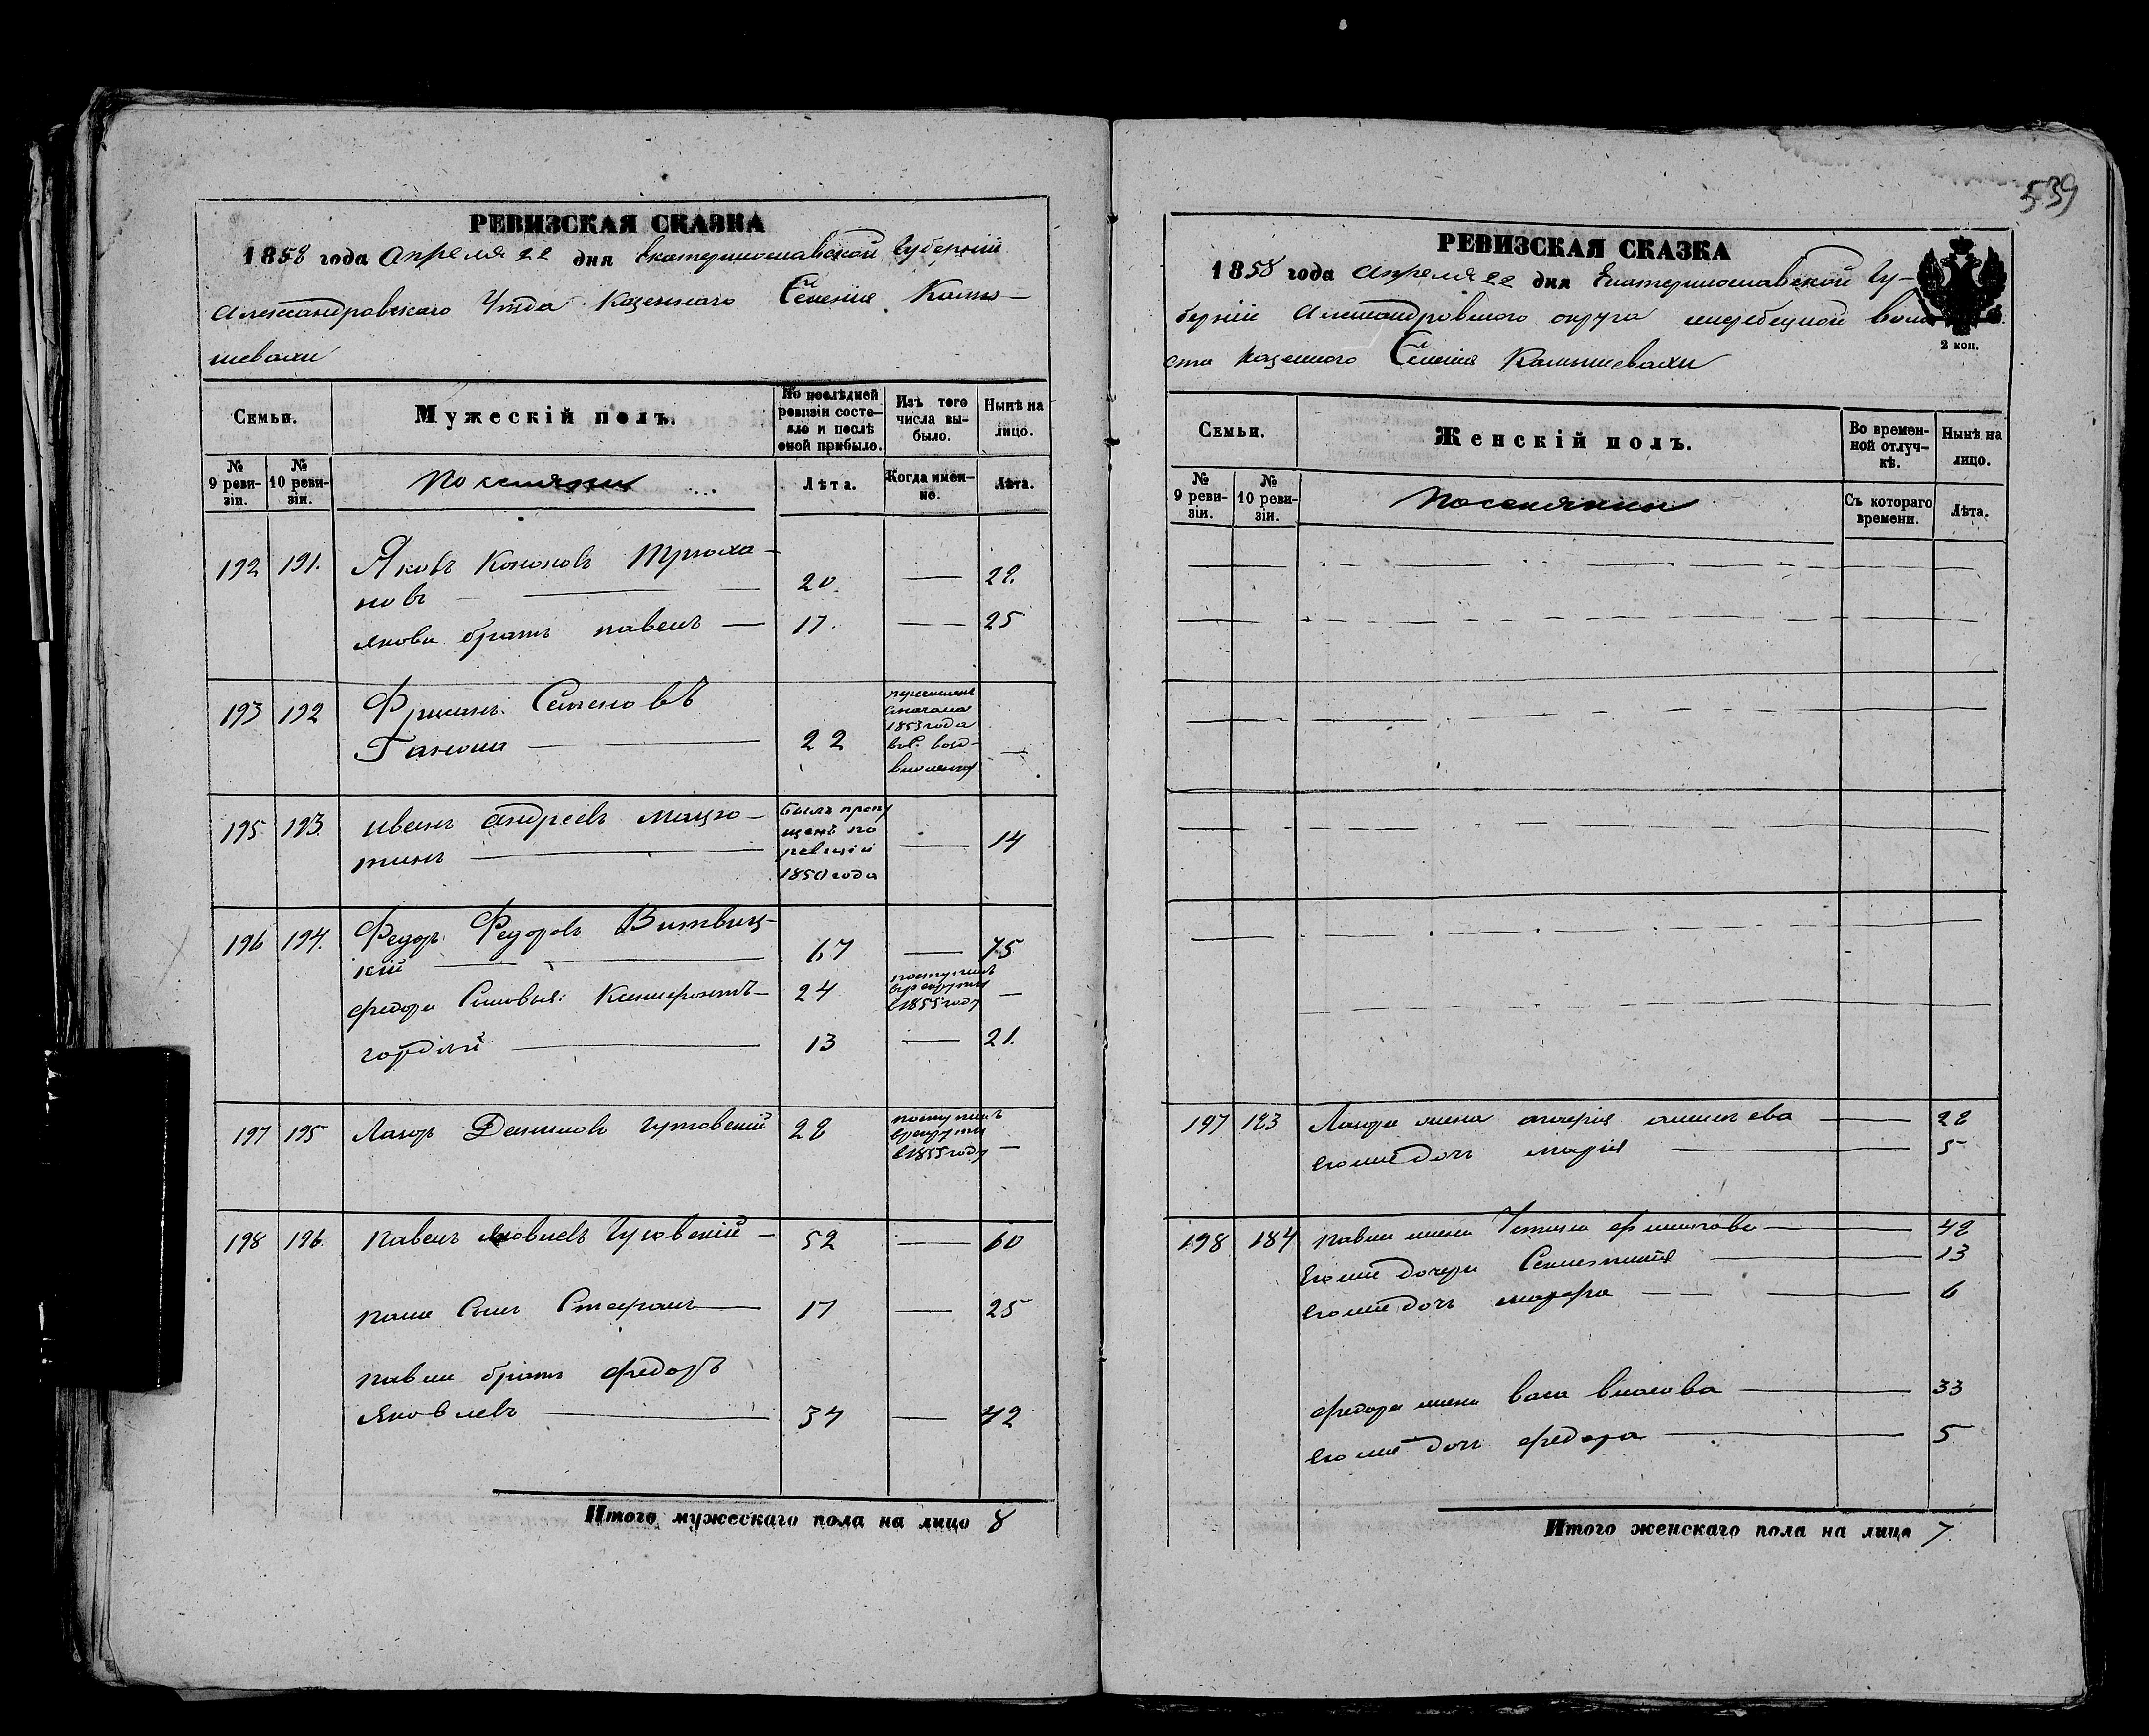 539
РЕВИЗСКАЯ СКАЗКА
1858 года Апреля 22 дня Екатеринославской Губерніи
Александровскаго Уѣзда Казеннаго Селенія Камы-
шевахи
Семьи.
Мужескій полъ.
По послѣдней ревизіи состо-
яло и послѣ
оной прибыло.
Изъ того
числа вы-
было.
Нынѣ на
лицо.
№
9 реви-
зіи.
№
10 реви-
зіи.
Поселяны
Лѣта.
Когда имен-
но.
Лѣта.
192 191. Яковъ Кононовъ Трюха-
новъ 20 — 28.
Якова братъ Павелъ — 17. — 25
193 192 Семеновъ
22
1853 года
—
195 193. Иванъ Андреевъ
Былъ пропу
щенъ по
ревизіи
1850 года
— 14
196 194. Федоръ Федоровъ Витвиц-
кій 67 — 75
Федора Сыновья: 24
поступилъ
в рекруты
в 1855 году
—
Гордѣй 13 — 21.
197 195 Лазоръ Денисовъ 28
поступилъ
в рекруты
в 1855 году
—
198 196. Павелъ Яковлевъ — 52 — 60
Сынъ Стефанъ — 17 — 25
Павла братъ Федоръ
Яковлевъ 34 — 42
Итого мужескаго пола на лицо 8
РЕВИЗСКАЯ СКАЗКА
1858 года Апреля 22 дня Екатеринославской Гу-
берніи Александровского округа Жеребецкой воло
сти казенного Селенія Камышевахи
2 коп.
Семьи.
Женскій полъ.
Во времен-
ной отлуч-
кѣ.
Нынѣ на
лицо.
№
9 реви-
зіи.
№
10 реви-
зіи.
Поселянки
Съ котораго
времени.
Лѣта.
197 183 Лазора жена 28
его же дочь Марія 5
198 184 Павла жена 48
Его же дочери 13
его же дочь 6
Федора жена Васа Власова 33
его же дочь Федора 5
Итого женскаго пола на лицо 7